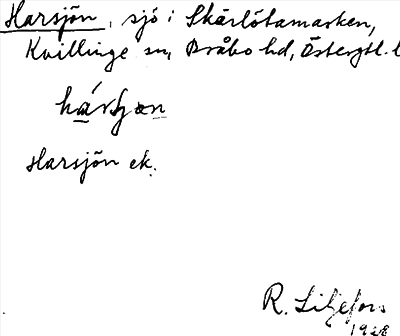 Harsjön, sjö i Skärlötamarken,
Kvillinge sn, Bråbo hd, Östergtl. l
Harsjön ek.
R. Liljefors
1928